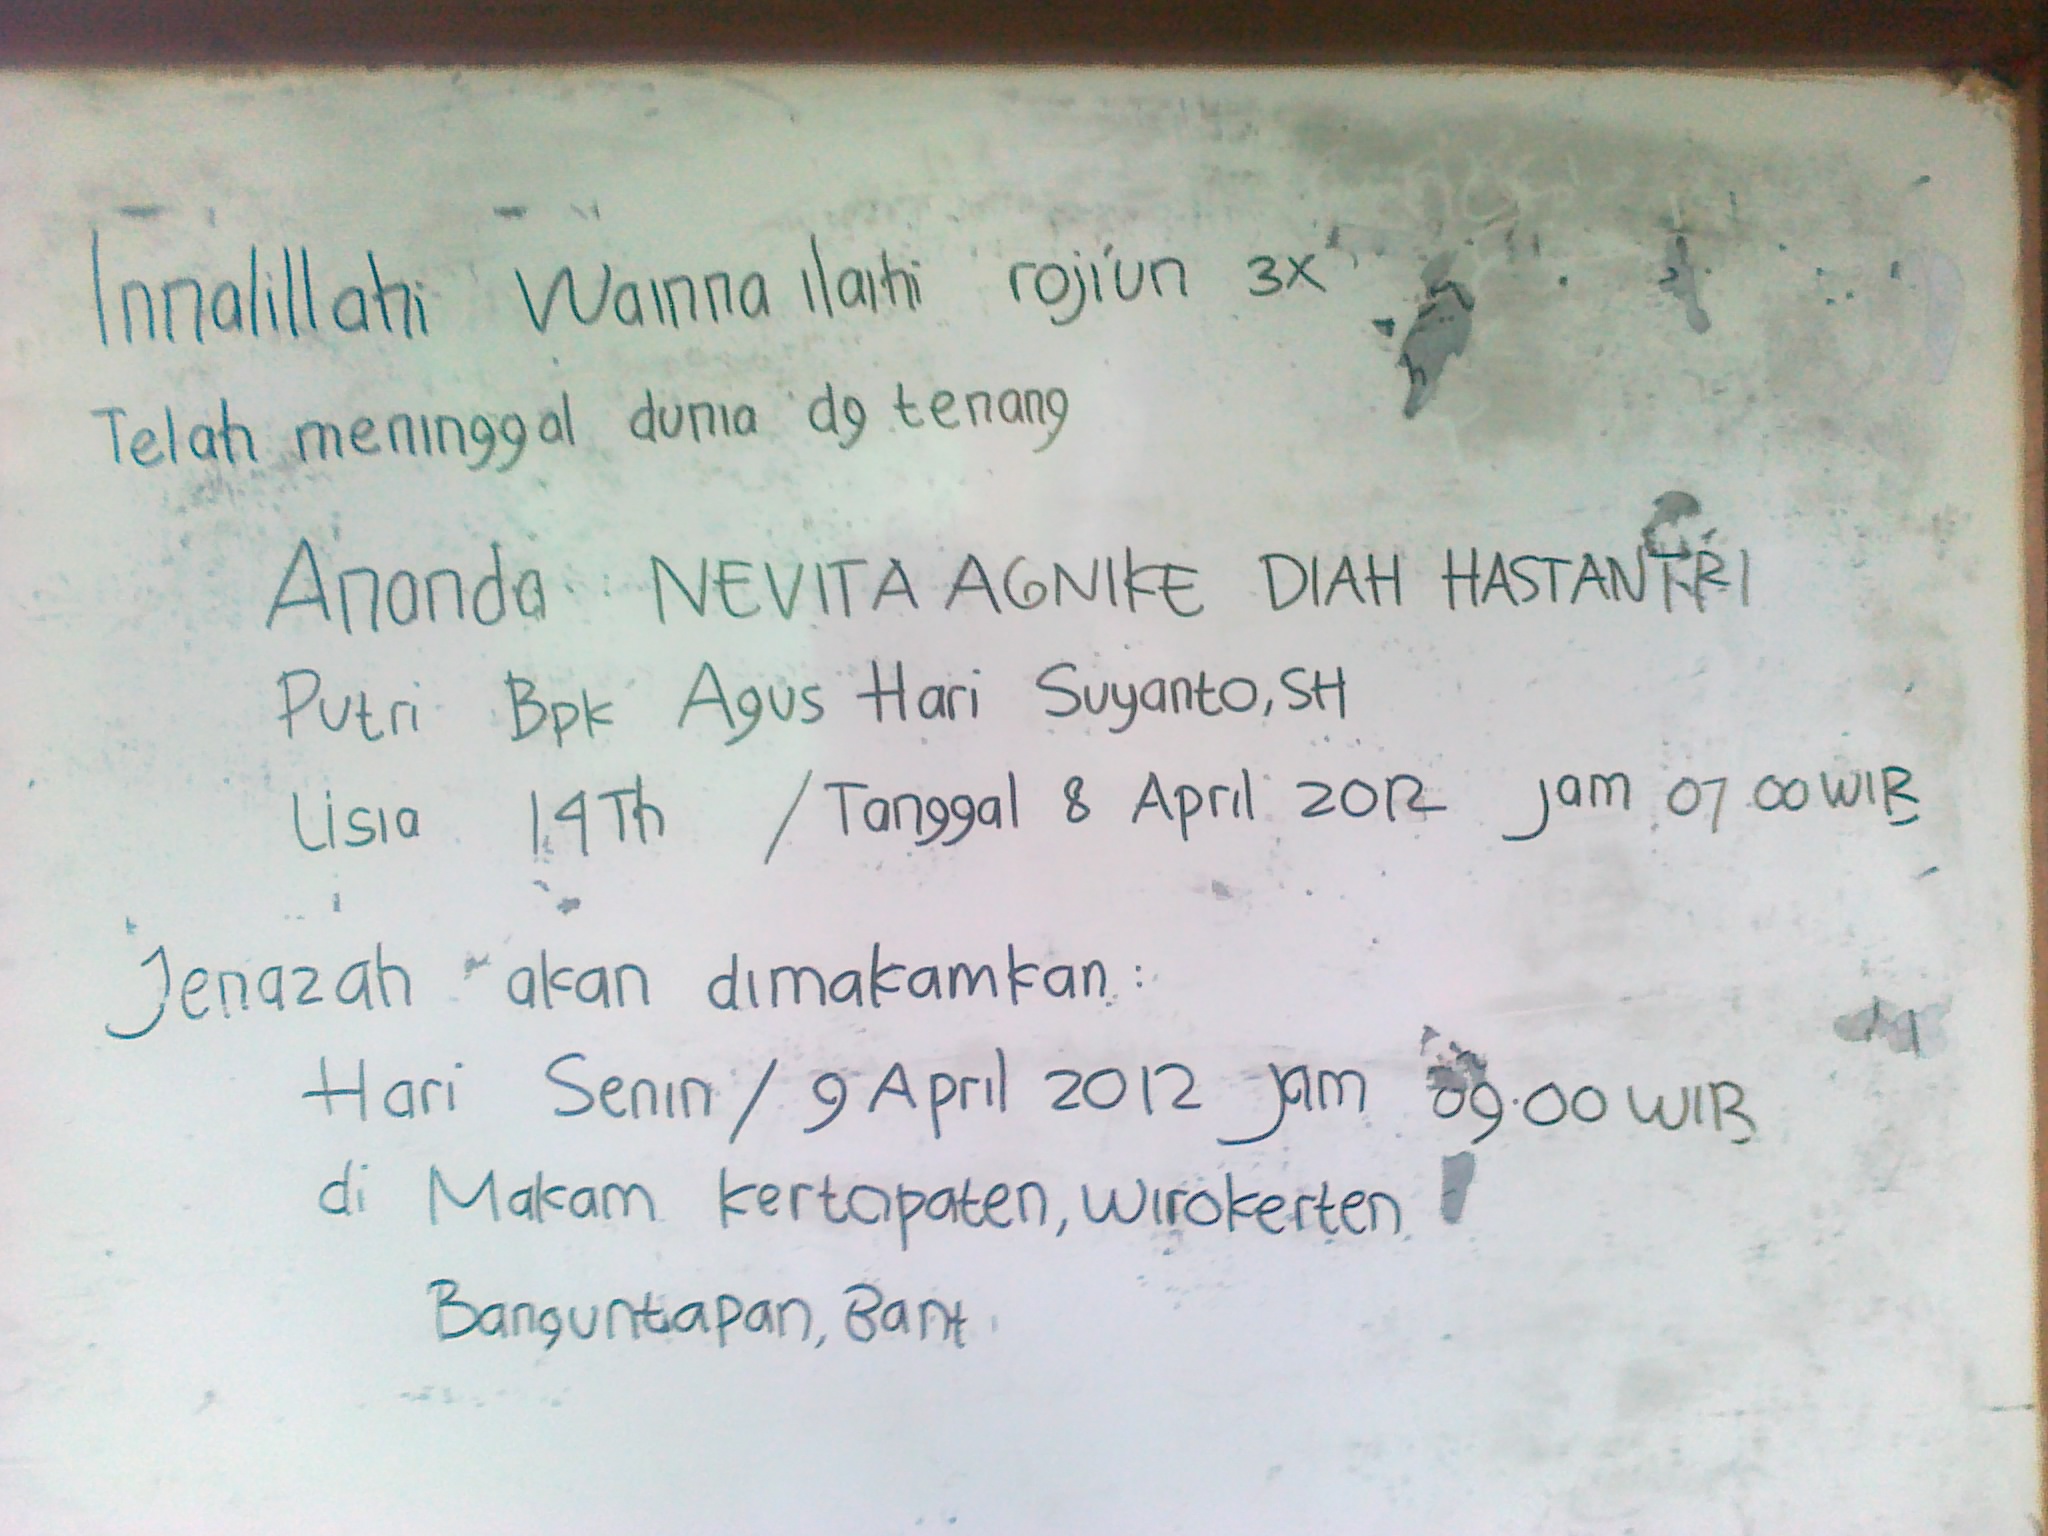 Innalillahi Wainna ilaihi roji'un 3x
Telah meninggal dunia dg tenang
Ananda NEVITA AGNIKE DIAH HASTANTRI
Putri Bpk Agus Hari Suyanto, SH
Usia 14 Th / Tanggal 8 April 2012 jam 07.00 WIB
Jenazah akan dimakamkan :
Hari Senin / 9 April 2012 jam 09.00 WIB
di Makam kertopaten, wirokerten
Banguntapan, Bant